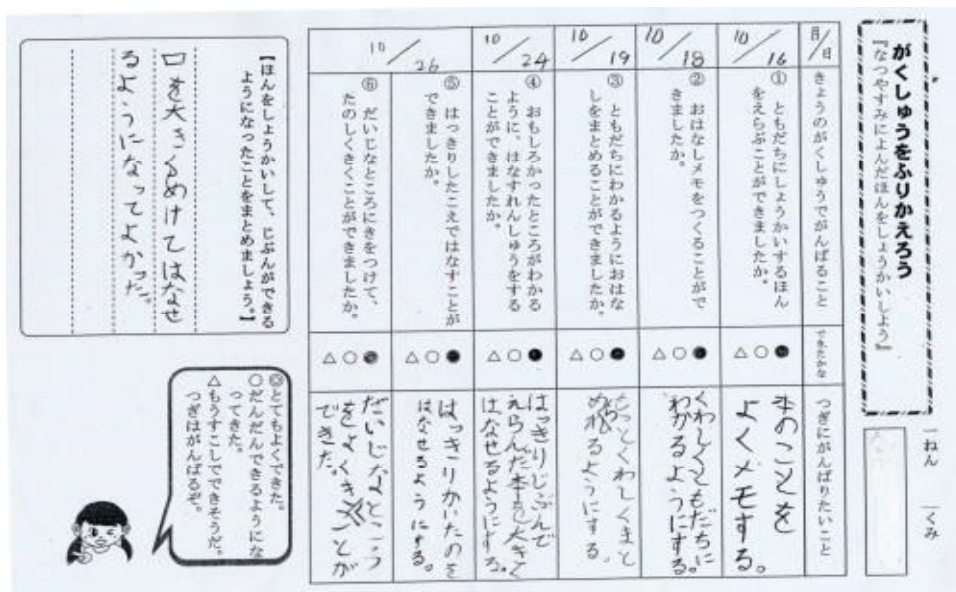 がくしゅうをふりかえろう
『なつやすみによんだほんをしょうかいしよう』
一ねん 一くみ
月/日
きょうのがくしゅうでがんばること
できたかな
つぎにがんばりたいこと
10/16
① ともだちにしょうかいするほん
をえらぶことができましたか。
●○△
本のことを
よくメモする。
10/18
② おはなしメモをつくることがで
きましたか。
●○△
くわしくともだちに
わかるようにする。
10/19
③ ともだちにわかるようにおはな
しをまとめることができましたか。
●○△
もっとくわしくまと
めれるようにする。
10/24
④ おもしろかったところがわかる
ように、はなすれんしゅうをする
ことができましたか。
●○△
はっきりじぶんで
えらんだ本を大きく
はなせるようにする。
10/26
⑤ はっきりしたこえではなすことが
できましたか。
●○△
はっきりかいたのを
はなせるようにする。
⑥ だいじなところにきをつけて、
たのしくきくことができましたか。
●○△
だいじなところ
をよくきくことが
できた。
【ほんをしょうかいして、じぶんができる
ようになったことをまとめましょう。】
口を大きくあけてはなせ
るようになってよかった。
◎とてもよくできた。
○だんだんできるようにな
ってきた。
△もうすこしでできそうだ。
つぎはがんばるぞ。